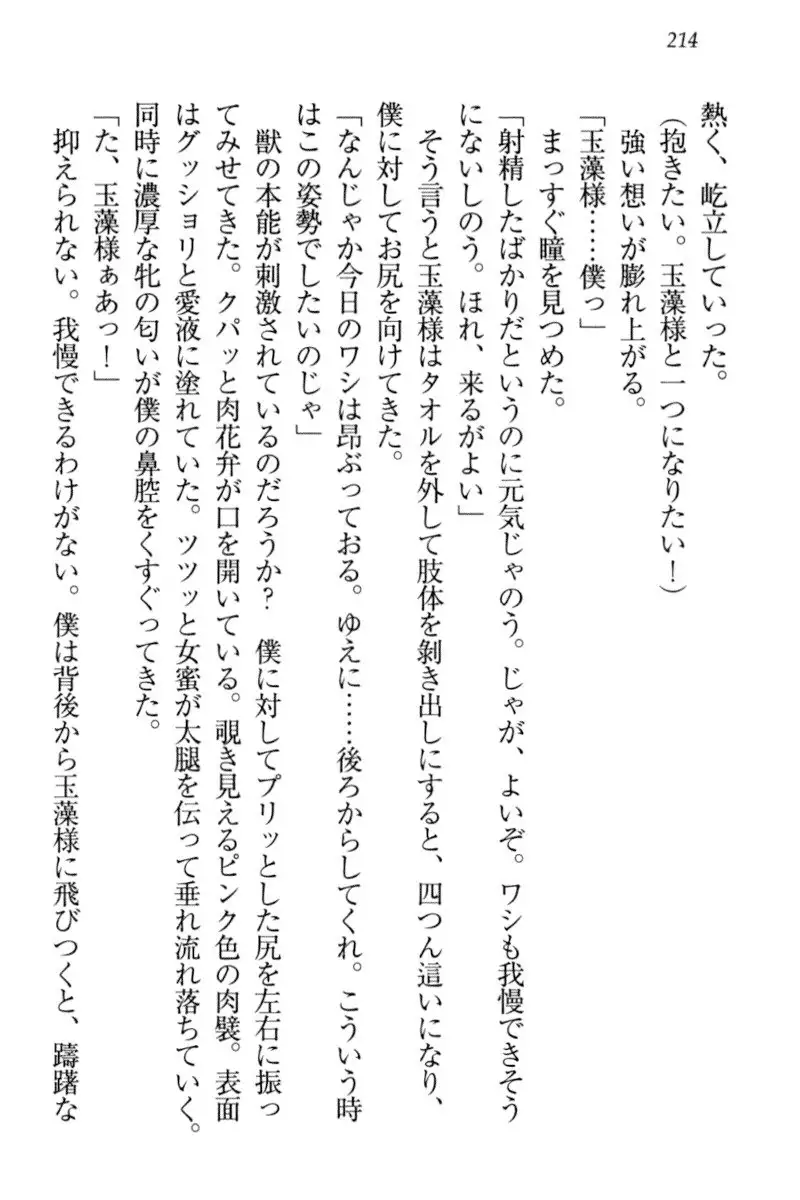 214
熱く、屹立していった。
（抱きたい。玉藻様と一つになりたい！）
強い想いが膨れ上がる。
「玉藻様……僕っ」
まっすぐ瞳を見つめた。
「射精したばかりだというのに元気じゃのう。じゃが、よいぞ。ワシも我慢できそう
にないしのう。ほれ、来るがよい」
そう言うと玉藻様はタオルを外して肢体を剝き出しにすると、四つん這いになり、
僕に対してお尻を向けてきた。
「なんじゃか今日のワシは昂ぶっておる。ゆえに……後ろからしてくれ。こういう時
はこの姿勢でしたいのじゃ」
獣の本能が刺激されているのだろうか？　僕に対してプリッとした尻を左右に振っ
てみせてきた。クパッと肉花弁が口を開いている。覗き見えるピンク色の肉襞。表面
はグッショリと愛液に塗れていた。ツツッと女蜜が太腿を伝って垂れ流れ落ちていく。
同時に濃厚な牝の匂いが僕の鼻腔をくすぐってきた。
「た、玉藻様ぁあっ！」
抑えられない。我慢できるわけがない。僕は背後から玉藻様に飛びつくと、躊躇な